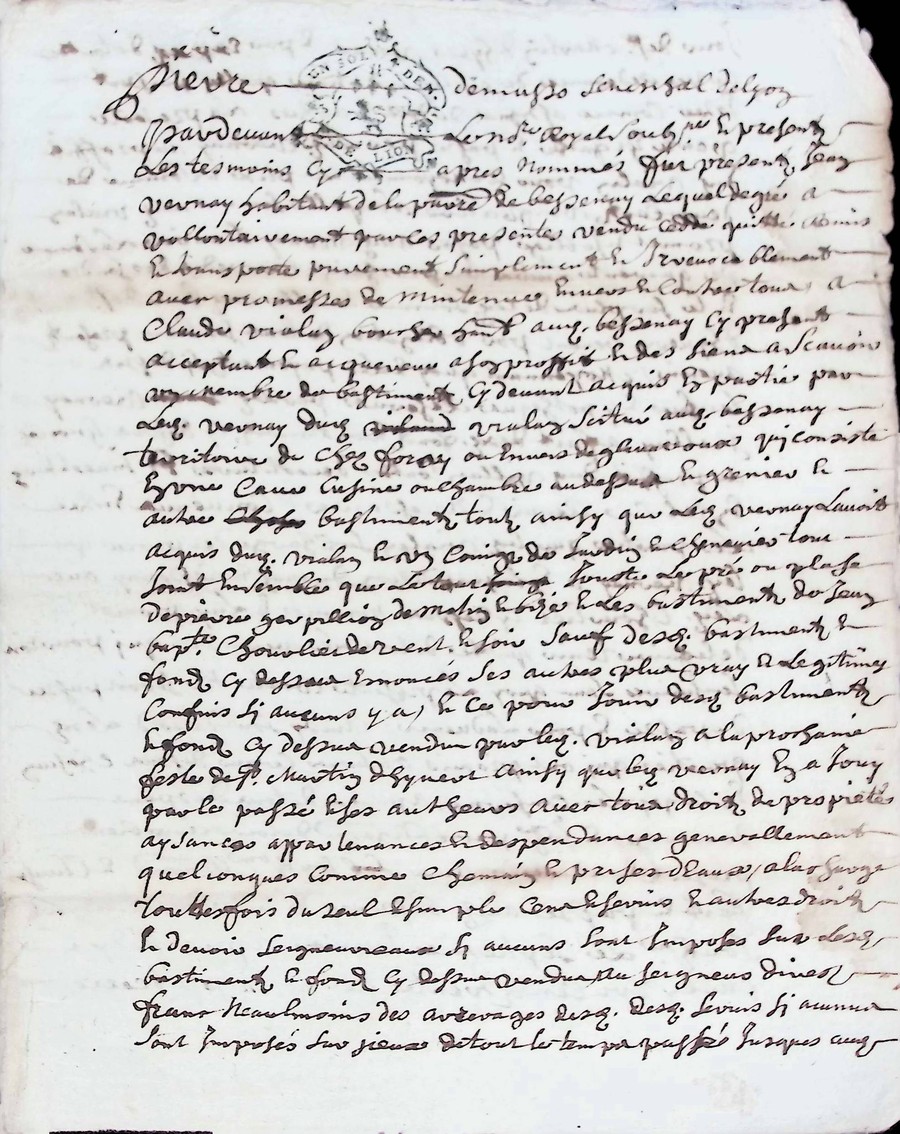 UN SOL 4 DEN
G. DE LION
Pardevant Le no.re Royal soub.né et presentz
Les tesmoins Cy apres nommés fut present Jean
vernay habitant de la parre de bessenay Lequel de gré a
vollontairement par ces presentes vendu ceddé quitté remis
Et transporte purement simplement Et Irrevocablement
avec promesses de mintenue Envers Et Contre tous, a
Claude vialay boucher hant aud. bessenay Cy present
acceptant Et acquereur a son proffit Et des siens a scavoir
un membre de bastiment Cy devant acquis En partie par
Led. vernay dud. vialay scitué aud. bessenay
territoire de Chez foray ou Envers qui consiste
En une Cave Cusine ou chambre au dessus Et grenier Et
autre bastimentz toutz ainsy que Led. vernay Lavoit
acquis dud. vialay Et un Coing de Jardin Et Chenevier tout
Joint Ensemble que Jouste Le pré ou plasse
de pierre de matin Et bize Et Les bastimentz de Jean
bap.te de vent Et soir sauf desd. bastimentz Et
fondz Cy dessus Enoncés ses autres plus vray Et Legitimes
Confins sj aucuns y a, Et Ce pour Jouir desd. bastimentz
Et fondz Cy dessus vendu par led. vialay a la prochaine
feste de St. Martin dhyvert ainsy que led. vernay En a Jouy
par le passé Et ses autheurs avec tous droitz de propietés
aysances appartenances Et despendances generallement
quelconques Comme Chemin Et prises dEaux, a la charge
touttesfois du seul Et simple Cens Et servis Et autres droitz
Et devoir seigneureaux sj aucuns sont Imposés sur Lesd.
bastimentz Et fondz Cy dessus vendus au seigneur divers
franc Neaulmoins des arrerages desd. servis sj aucuns
sont Imposés sur jceux de tout le temps passé Jusques auj-